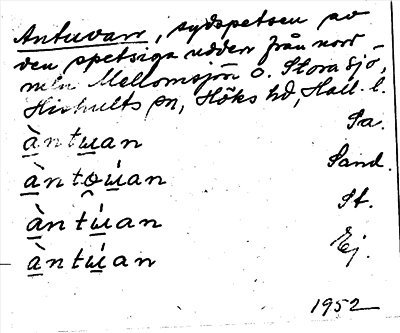 Antuvarr, sydspetsen av
den spetsiga udden från norr
mln Mellomsjön o. Stora sjö,
Hishults sn, Höks hd, Hall. l.
àntu̲an Sa.
àntoú̲an Sand.
àntú̲an St.
àntú̲an Ej.
1952